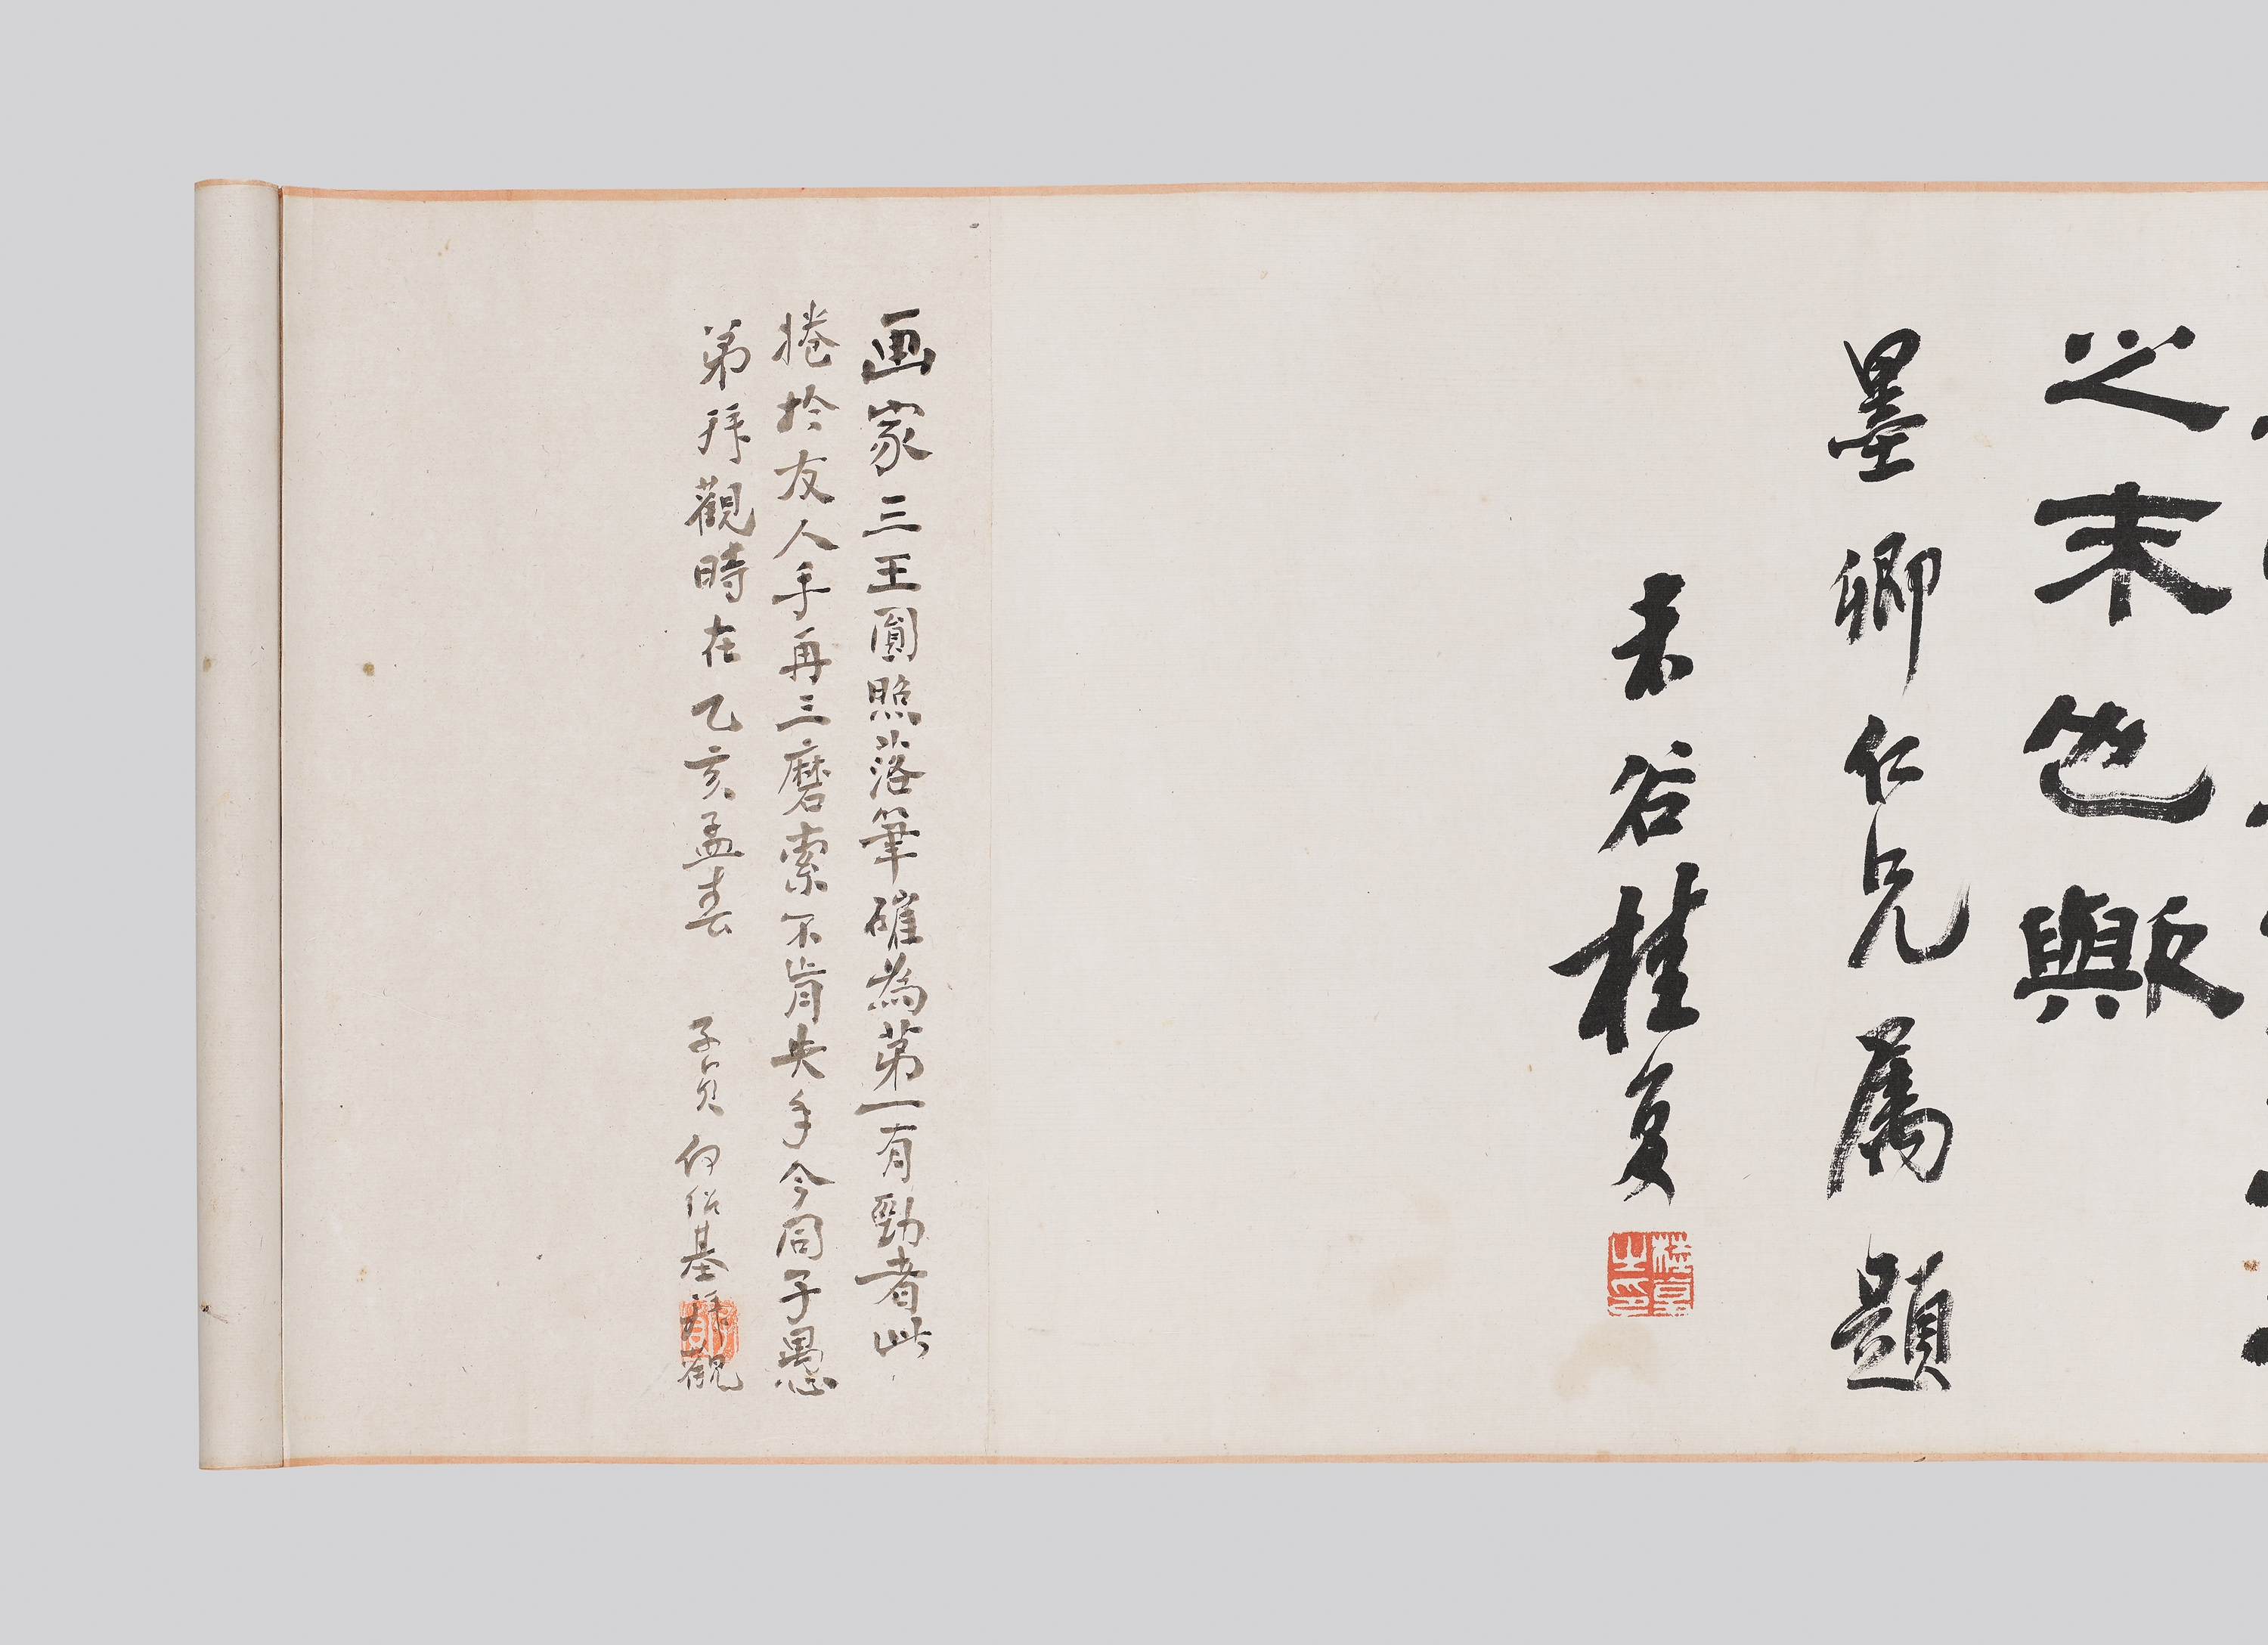 之末也歟
墨卿仁兄屬題
未谷桂复
桂馥之印
画家三王圓照落筆確為第一有勁者此
捲於友人手再三磨索不肯失手今同子愚
弟拜觀時在乙亥孟春 子貞何紹基拜觀